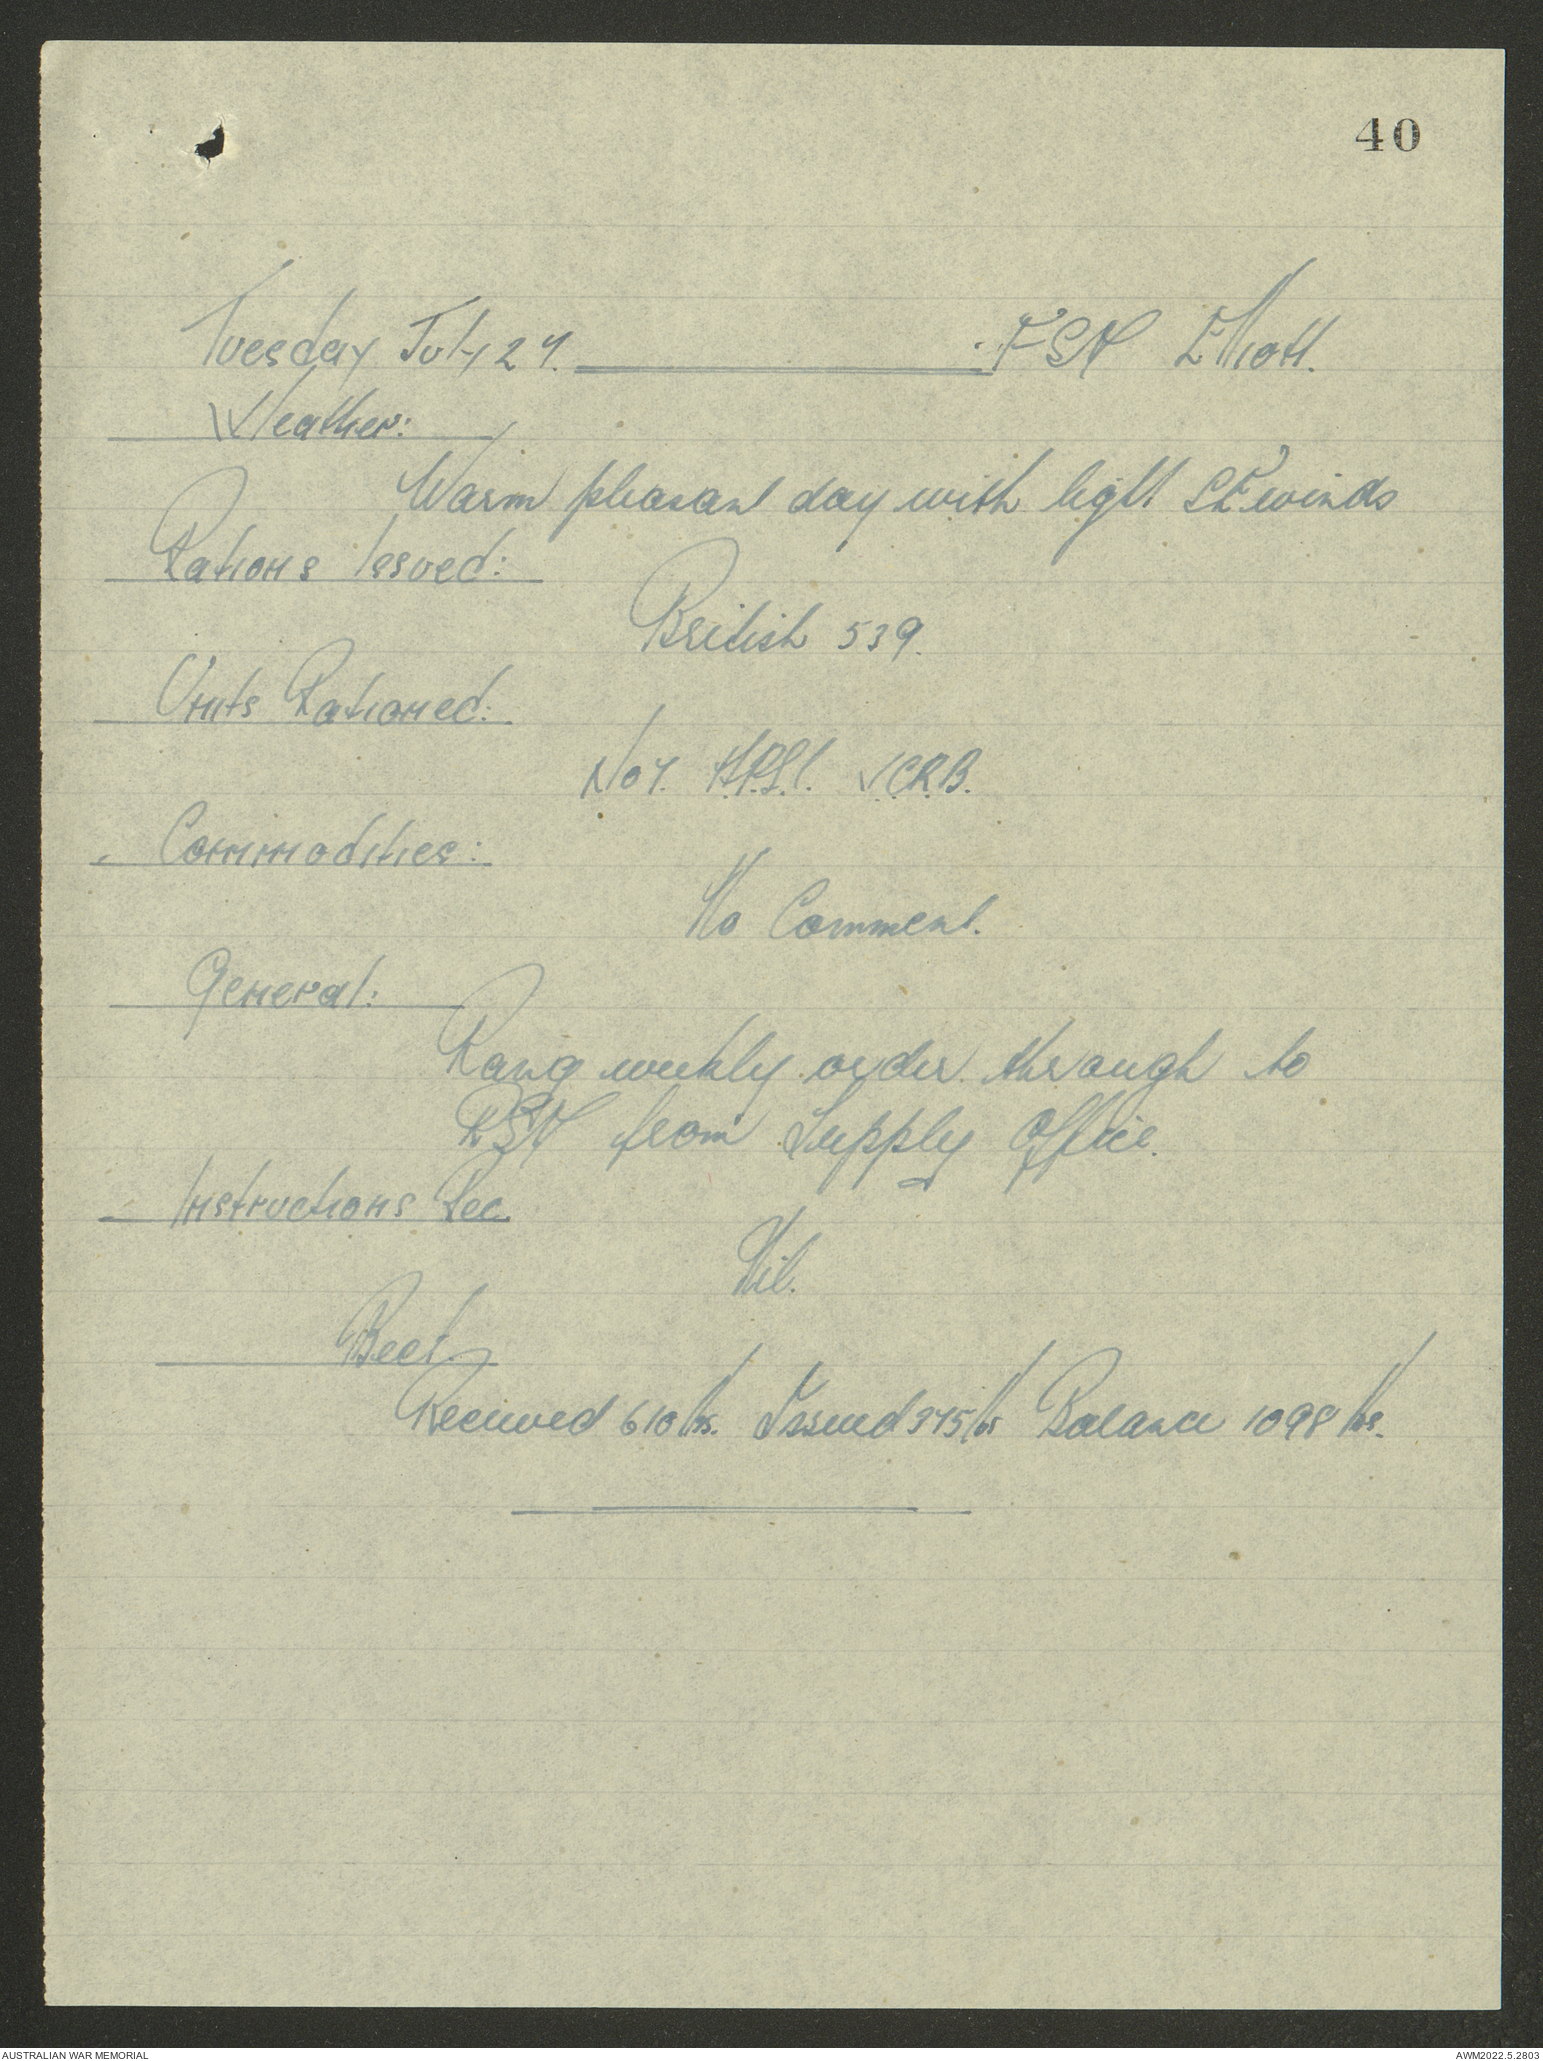 40
Tuesday July 27. FSD Elliott.
Weather:
Warm pleasant day with light SE winds
Rations Issued:
British 539.
Units Rationed:
No 7. V.C.R.B.
Commodities:
No Comment.
General:
Rang weekly order through to
from Supply Office.
Instructions Rec
Nil.
Beef.
Received 610 lbs. Issued 375 lbs Balance 1098 lbs.
AUSTRALIAN WAR MEMORIAL
AWM2022.5.2803